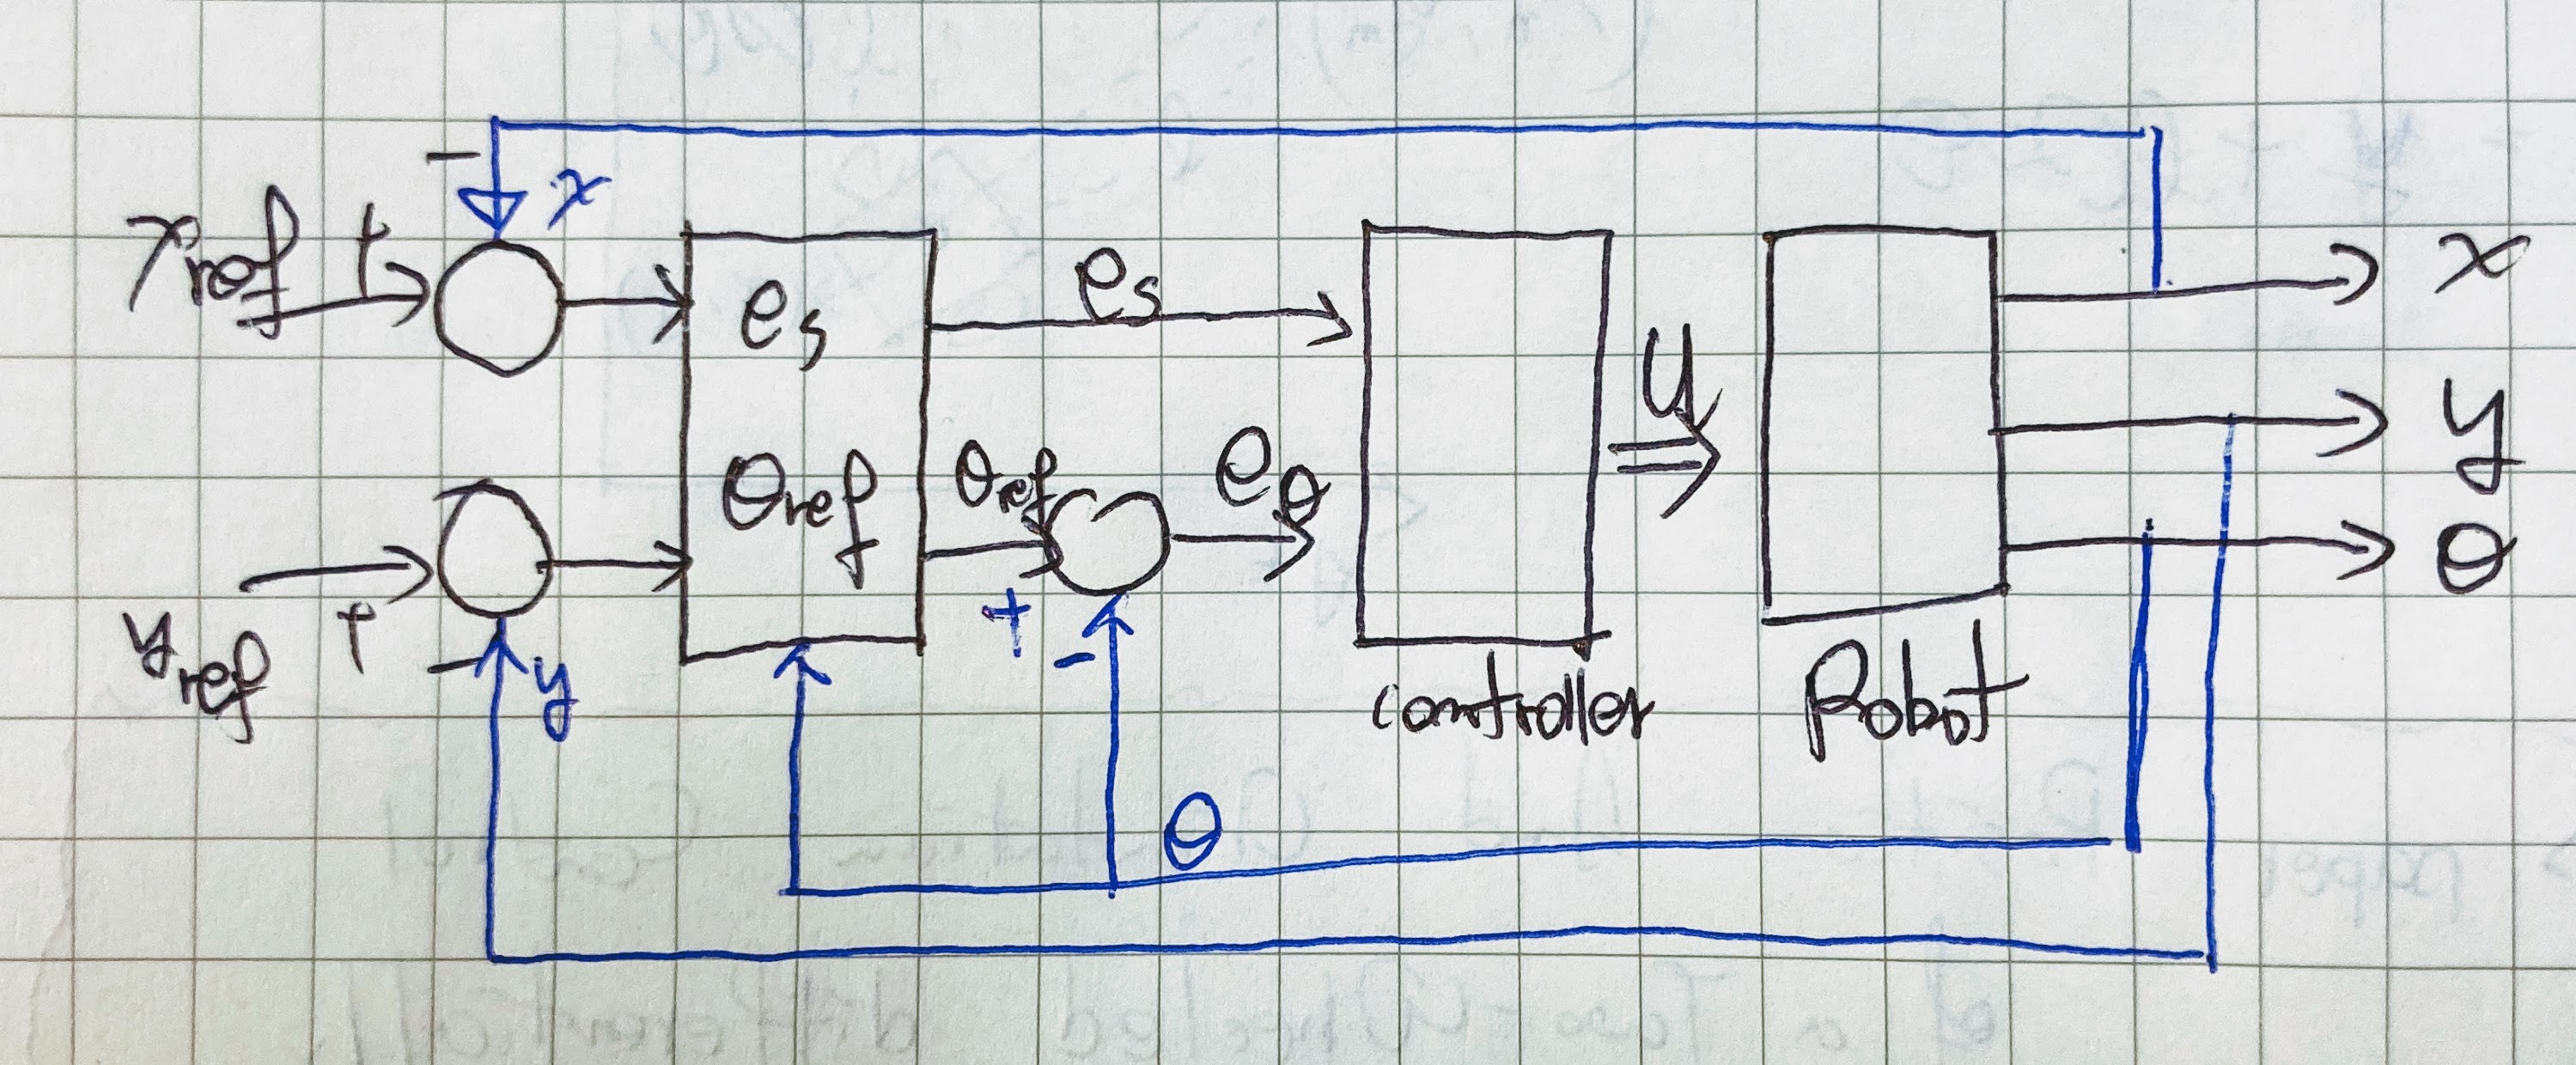 - x
x_ref +
e_s e_s
u
x
y
θ_ref θ_ref e_θ
θ
+ -
y_ref + - y
controller Robot
θ